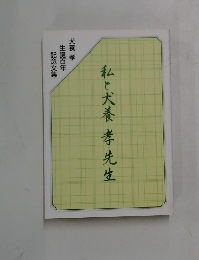 犬養 孝
生誕百年
記念文集
私と犬養 孝先生